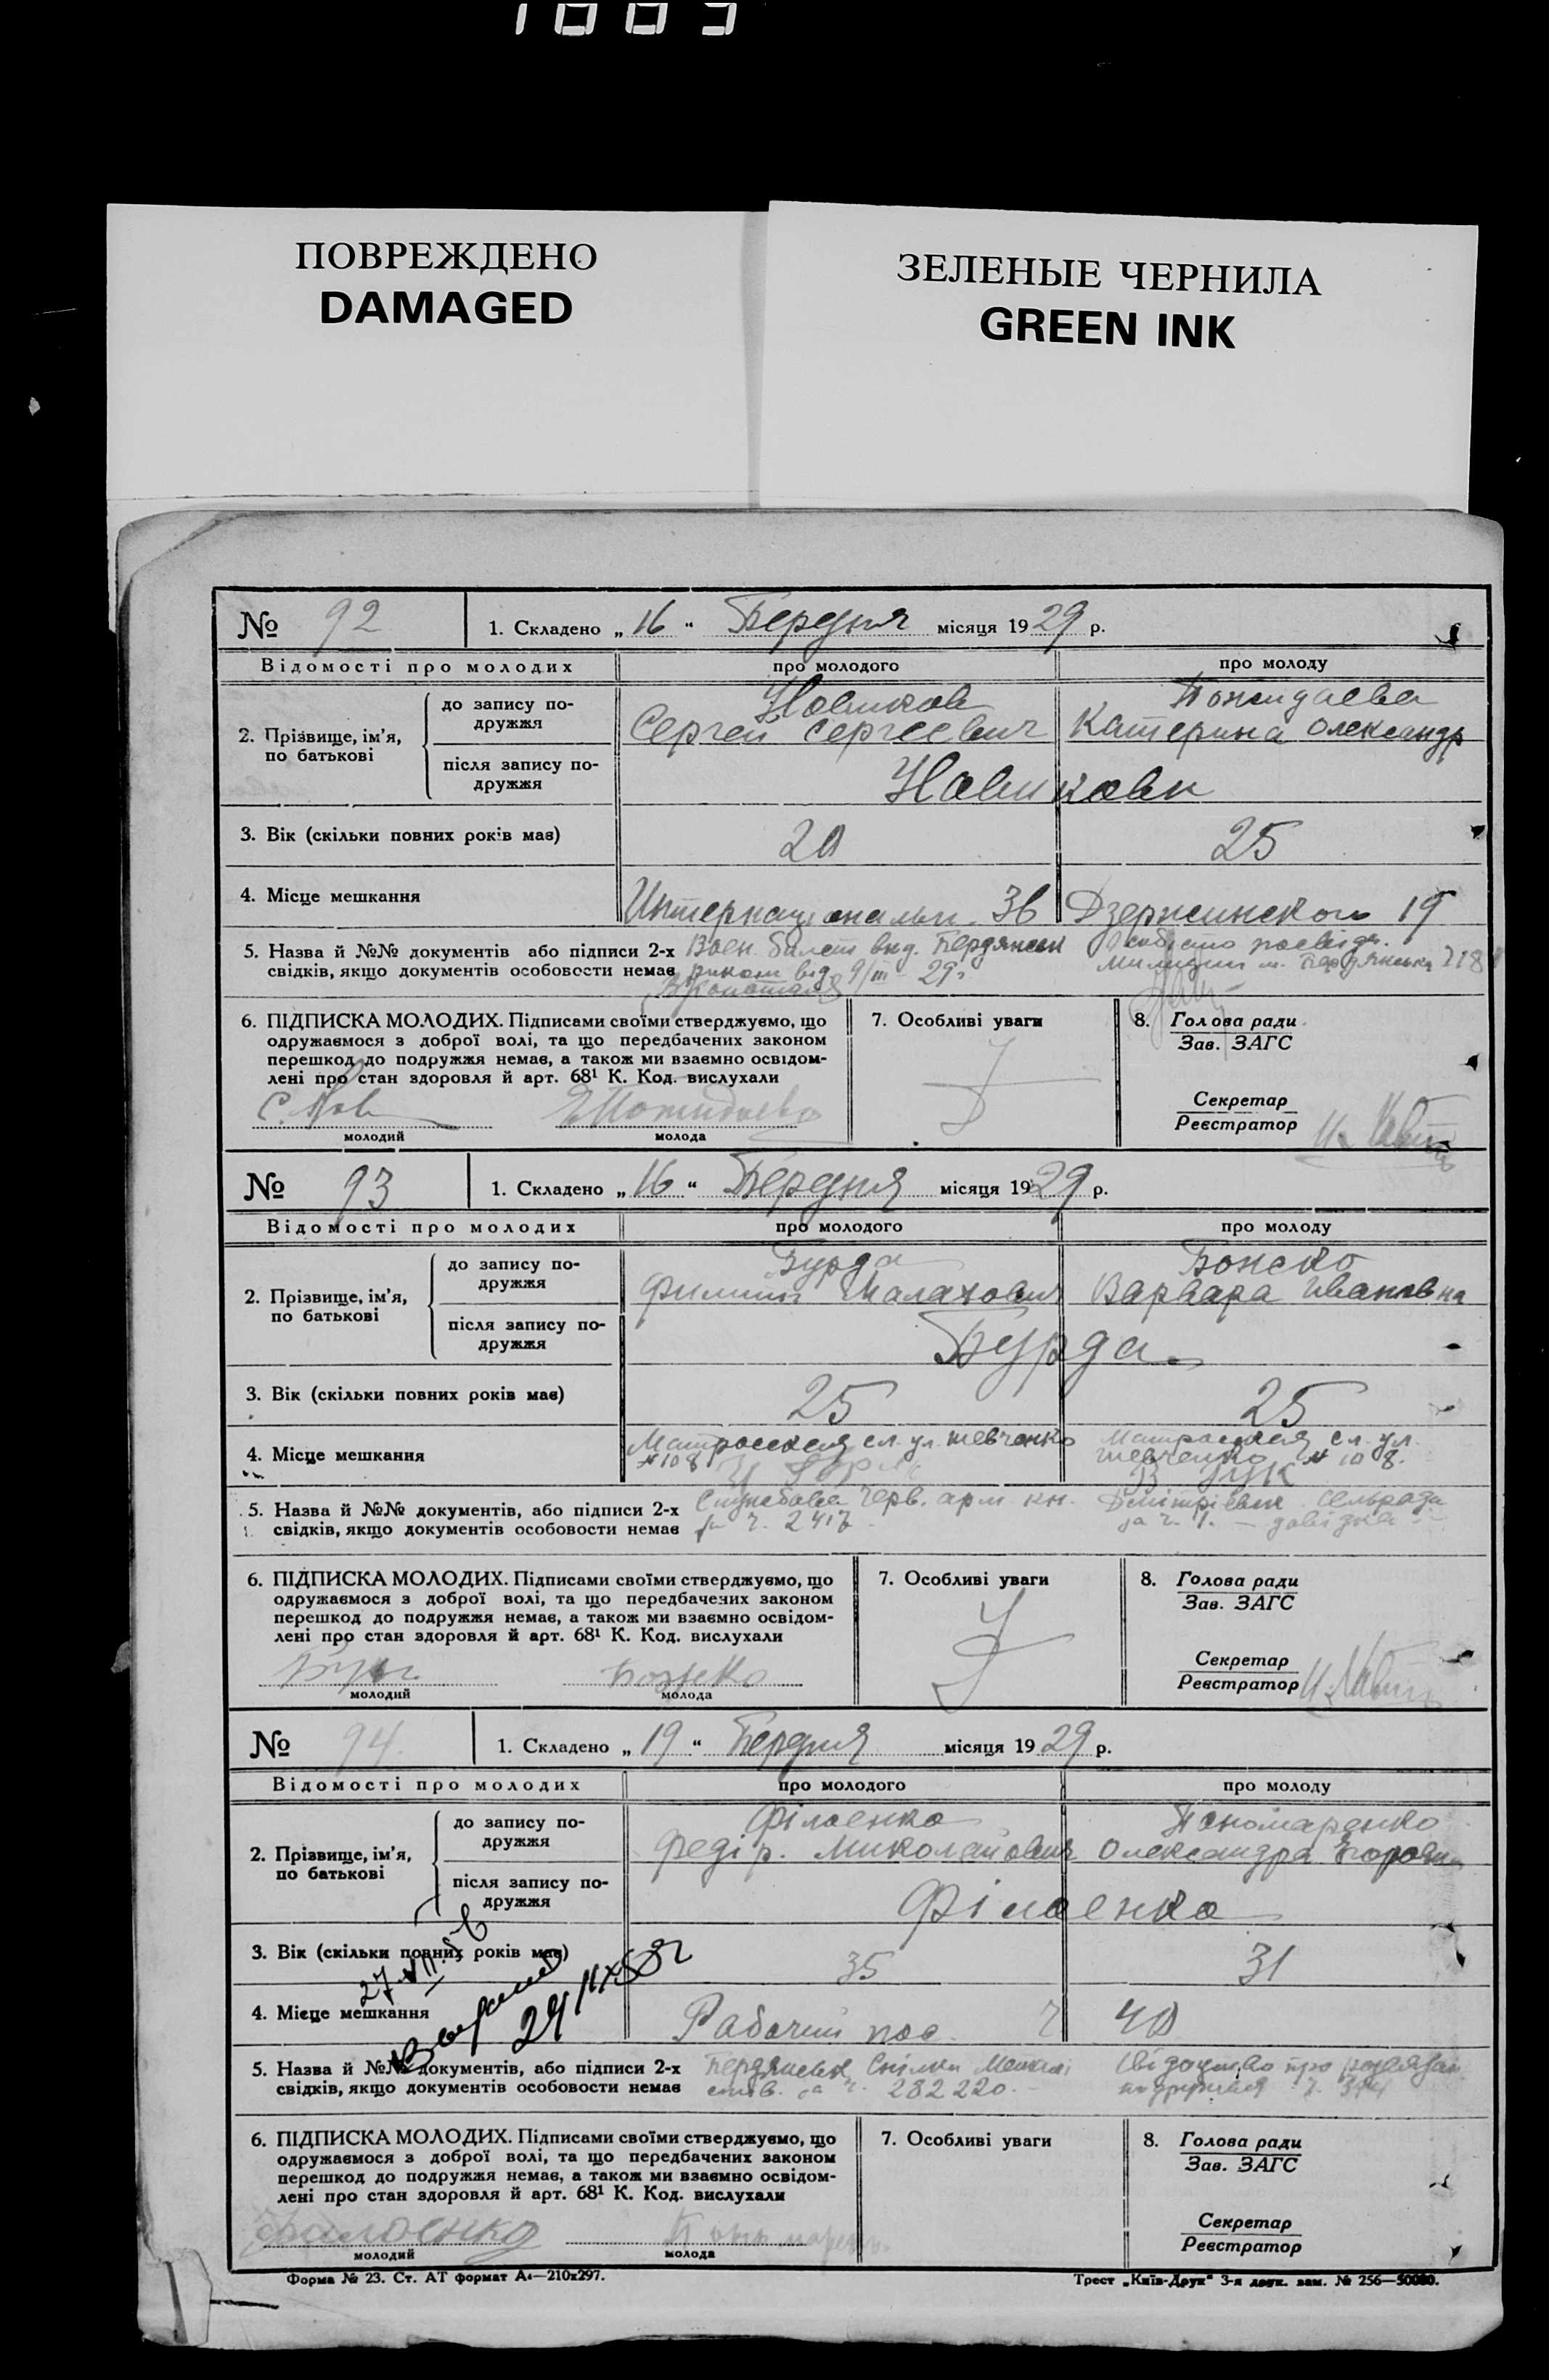 1003
ПОВРЕЖДЕНО
DAMAGED
ЗЕЛЕНЫЕ ЧЕРНИЛА
GREEN INK
№ 92 1. Складено „16“ Бердня місяця 1929 р.
Відомості про молодих про молодого про молоду
2. Прізвище, ім’я, по батькові
до запису подружжя
Новиков Пожидаева
Сергей Сергеевич Катерина Олександр
після запису подружжя
Новикови
3. Вік (скільки повних років має) 20 25
4. Місце мешкання Интернациональн. 36 Дзержинского 19
5. Назва й №№ документів або підписи 2-х Воен. билет вид. Бердянськ
свідків, якщо документів особовости немає від 9/III 29г милиции м. Бердянська 718
6. ПІДПИСКА МОЛОДИХ. Підписами своїми стверджуємо, що 7. Особливі уваги 8. Голова ради
одружаємося з доброї волі, та що передбачених законом Зав. ЗАГС
перешкод до подружжя немає, а також ми взаємно освідом-
лені про стан здоровля й арт. 68¹ К. Код. вислухали
Секретар
Реєстратор
С. Нов Пожидаева
молодий молода
№ 93 1. Складено „16“ Бердня місяця 1929 р.
Відомості про молодих про молодого про молоду
2. Прізвище, ім’я, по батькові
до запису подружжя
Бурда Божко
Филипп Малахович Варвара Ивановна
після запису подружжя
Бурда
3. Вік (скільки повних років має) 25 25
4. Місце мешкання Матросская сл. ул. Шевченко Матросская сл. ул.
№ 108 Шевченко № 108.
5. Назва й №№ документів, або підписи 2-х Служебова Черв. арм. кн. Сельрада
свідків, якщо документів особовости немає за ч. 2417 за ч. 1.
6. ПІДПИСКА МОЛОДИХ. Підписами своїми стверджуємо, що 7. Особливі уваги 8. Голова ради
одружаємося з доброї волі, та що передбачених законом Зав. ЗАГС
перешкод до подружжя немає, а також ми взаємно освідом-
лені про стан здоровля й арт. 68¹ К. Код. вислухали
Секретар
Реєстратор
Божко
молодий молода
№ 94 1. Складено „19“ Бердня місяця 1929 р.
Відомості про молодих про молодого про молоду
2. Прізвище, ім’я, по батькові
до запису подружжя
Філоенко Пономаренко
Федір. Миколайович Олександра Егоровна
після запису подружжя
Філоенко
3. Вік (скільки повних років має) 35 31
4. Місце мешкання Рабочий пос. 40
5. Назва й №№ документів, або підписи 2-х Бердянськ Спілки Свідоцтво про розвязан.
свідків, якщо документів особовости немає за ч. 282220. подружжя ч.
6. ПІДПИСКА МОЛОДИХ. Підписами своїми стверджуємо, що 7. Особливі уваги 8. Голова ради
одружаємося з доброї волі, та що передбачених законом Зав. ЗАГС
перешкод до подружжя немає, а також ми взаємно освідом-
лені про стан здоровля й арт. 68¹ К. Код. вислухали
Секретар
Реєстратор
Филоенко
молодий молода
Форма № 23. Ст. АТ формат А4—210х297. Трест „Київ-Друк“ 3-я друк. зам. № 256—50000.